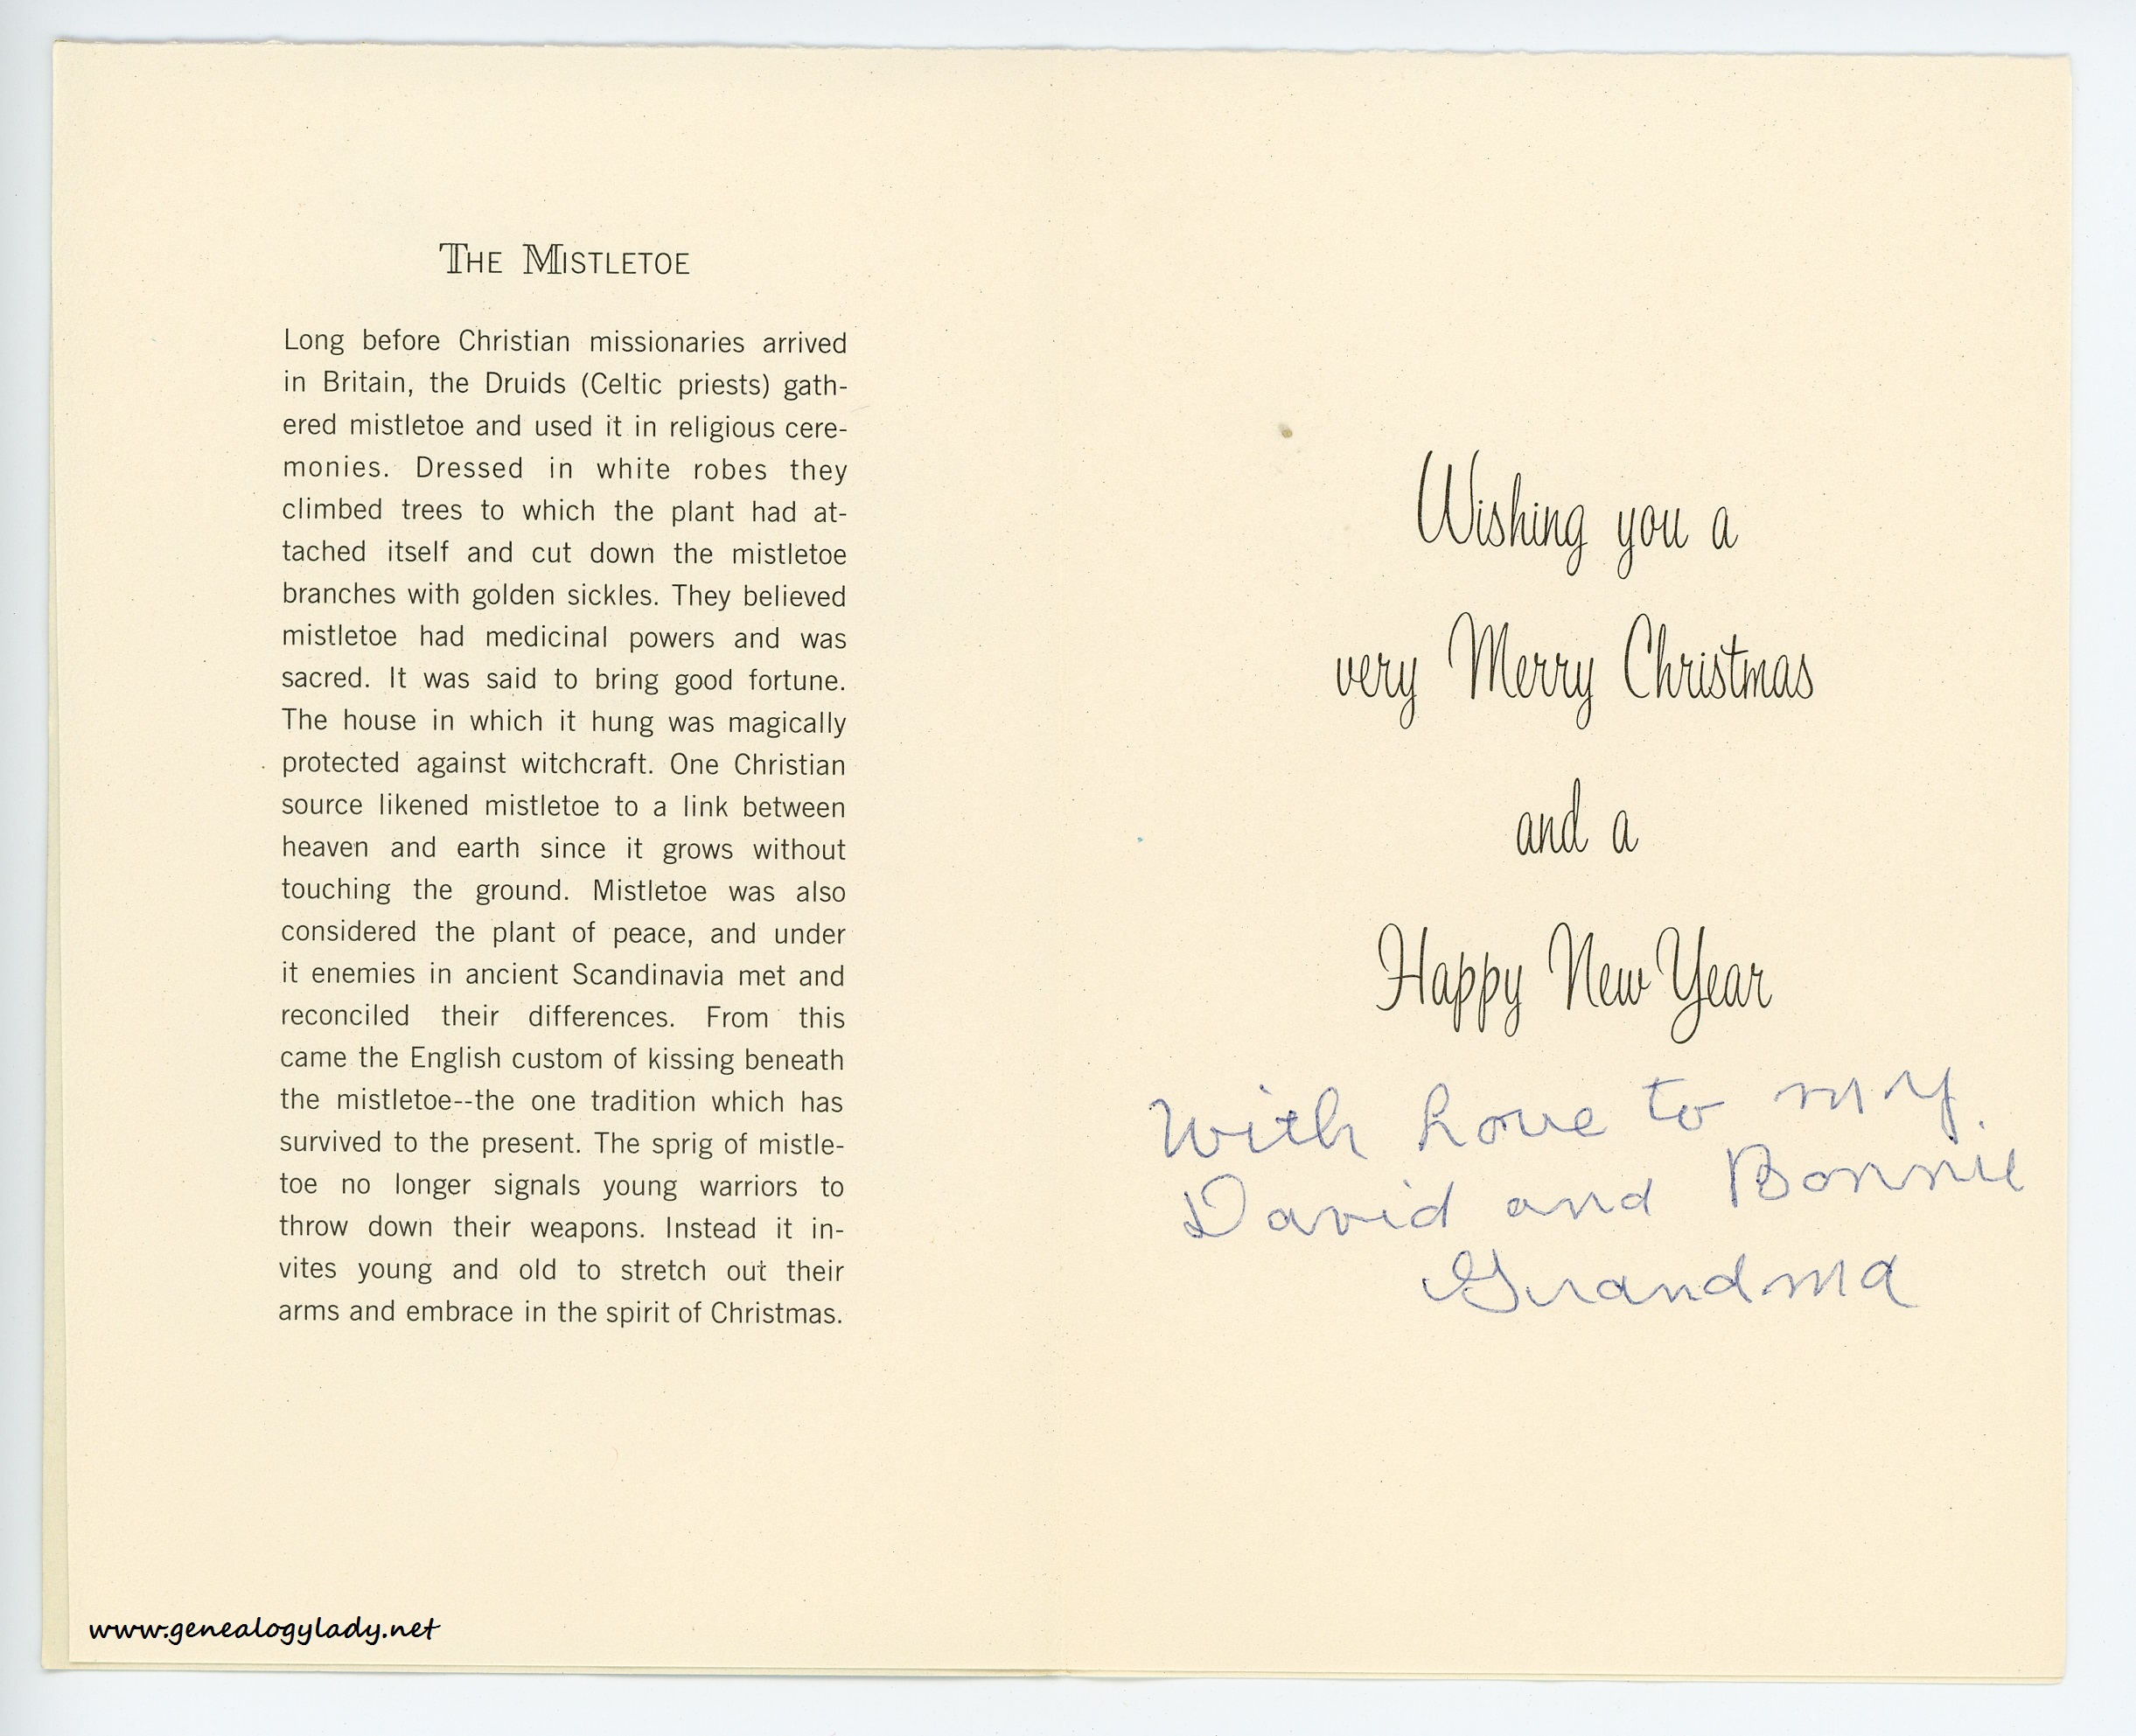 THE MISTLETOE
Long before Christian missionaries arrived
in Britain, the Druids (Celtic priests) gath-
ered mistletoe and used it in religious cere-
monies. Dressed in white robes they
climbed trees to which the plant had at-
tached itself and cut down the mistletoe
branches with golden sickles. They believed
mistletoe had medicinal powers and was
sacred. It was said to bring good fortune.
The house in which it hung was magically
protected against witchcraft. One Christian
source likened mistletoe to a link between
heaven and earth since it grows without
touching the ground. Mistletoe was also
considered the plant of peace, and under
it enemies in ancient Scandinavia met and
reconciled their differences. From this
came the English custom of kissing beneath
the mistletoe--the one tradition which has
survived to the present. The sprig of mistle-
toe no longer signals young warriors to
throw down their weapons. Instead it in-
vites young and old to stretch out their
arms and embrace in the spirit of Christmas.
Wishing you a
very Merry Christmas
and a
Happy New Year
With Love to my
David and Bonnie
Grandma
www.genealogylady.net